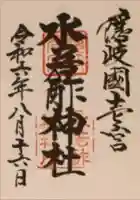 隱岐國壱宮
水若酢神社
令和六年八月十六日